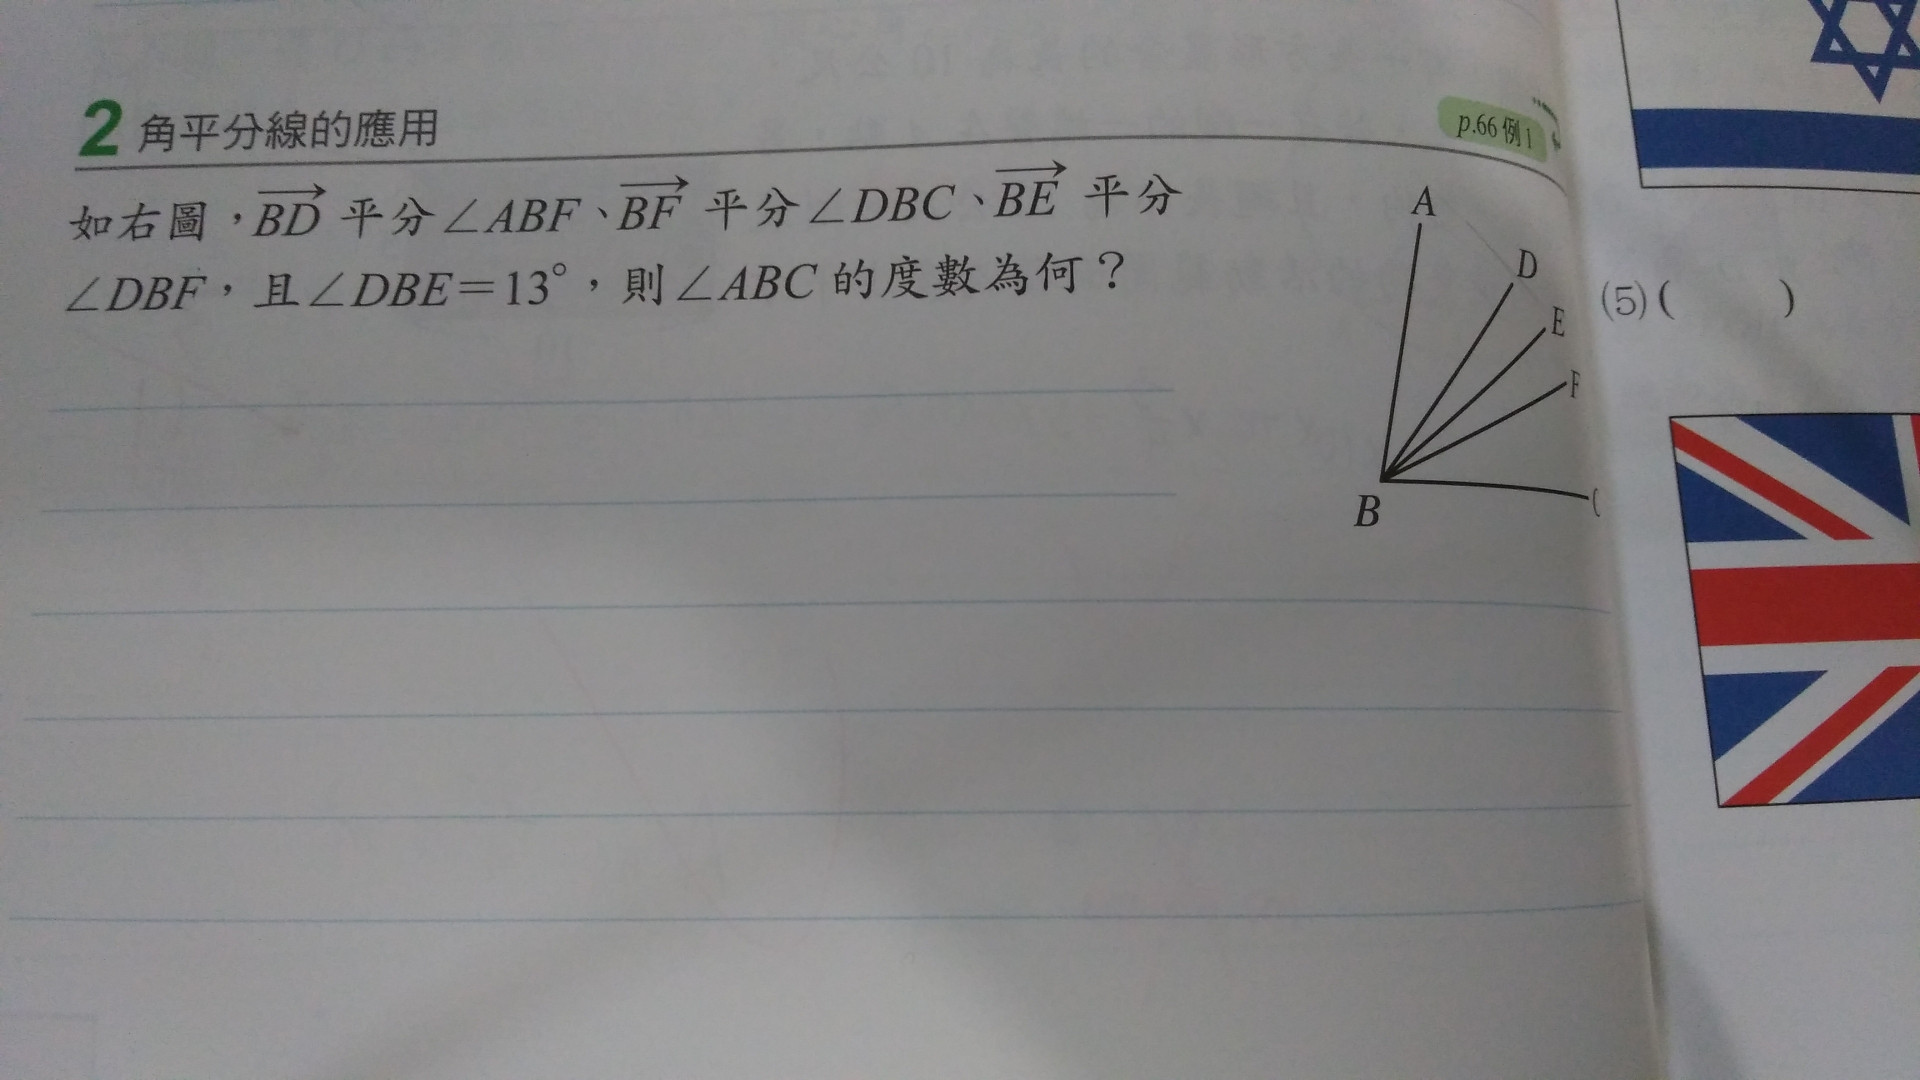 2 角平分線的應用
p.66 例1
如右圖，BD 平分∠ABF、BF 平分∠DBC、BE 平分
∠DBF，且∠DBE＝13°，則∠ABC 的度數為何？
A
D
E
F
B
C
(5)( )